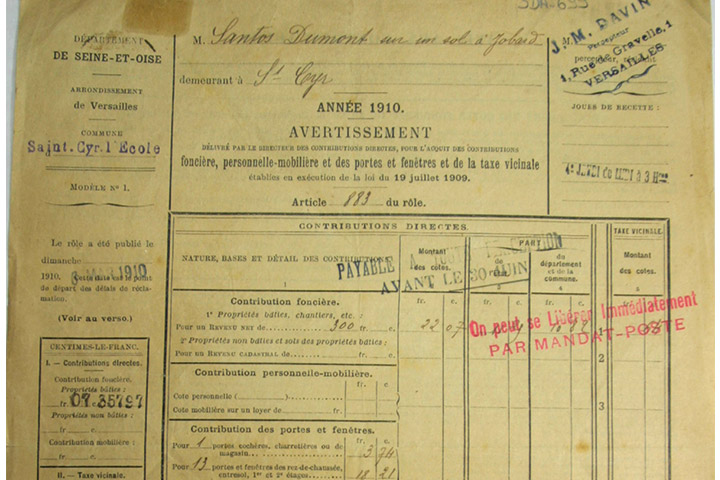 SDA-693
DÉPARTEMENT
DE SEINE-ET-OISE
ARRONDISSEMENT
de Versailles
COMMUNE
Saint. Cyr. l'Ecole
MODÈLE Nº 1.
Le rôle a été publié le
dimanche
1910
1910. Cette date est le point
de départ des délais de récla-
mation.
(Voir au verso.)
CENTIMES-LE-FRANC.
I. — Contributions directes.
Contribution foncière.
Propriétés bâties:
fr. 07.35797 c.
Propriétés non bâties:
fr. c.
Contribution mobilière:
fr. c.
II. — Taxe vicinale.
M. Santos Dumont sur un sol à Jobard
demeurant à St Cyr
ANNÉE 1910.
AVERTISSEMENT
DÉLIVRÉ PAR LE DIRECTEUR DES CONTRIBUTIONS DIRECTES, POUR L'ACQUIT DES CONTRIBUTIONS
foncière, personnelle-mobilière et des portes et fenêtres et de la taxe vicinale
établies en exécution de la loi du 19 juillet 1909.
Article 883 du rôle.
J.-M. DAVIN
Percepteur
1, Rue de Gravelle, 1
VERSAILLES
percepteur,
JOURS DE RECETTE:
CONTRIBUTIONS DIRECTES.
TAXE VICINALE.
NATURE, BASES ET DÉTAIL DES CONTRIBUTIONS
Montant
des cotes.
PART
de
du département
et de la
commune.
Montant
des cotes.
PAYABLE A
AVANT LE 30 JUIN
fr. c. fr. c. fr. c. fr. c.
Contribution foncière.
1º Propriétés bâties, chantiers, etc.:
Pour un REVENU NET de 300 fr. c. 22 07
2º Propriétés non bâties et sols des propriétés bâties:
Pour un REVENU CADASTRAL de fr. c.
On peut se Libérer Immédiatement
PAR MANDAT-POSTE
1
2
3
Contribution personnelle-mobilière.
fr. c.
Cote personnelle ( )
Cote mobilière sur un loyer de fr.
Contribution des portes et fenêtres.
fr. c.
Pour 1 portes cochères, charretières ou de
magasin 3 74
Pour 13 portes et fenêtres des rez-de-chaussée,
entresol, 1er et 2e étages 18 21